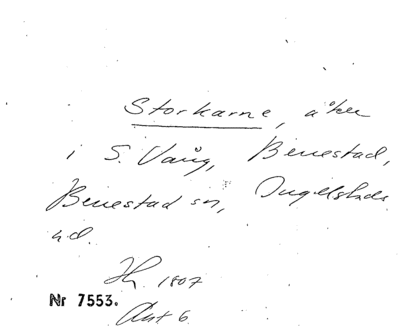 Storkarne, åker
i S. Vång, Benestad,
Benestad sn, Ingelstads
hd.
Hh 1807
Nr 7553.
Akt 6